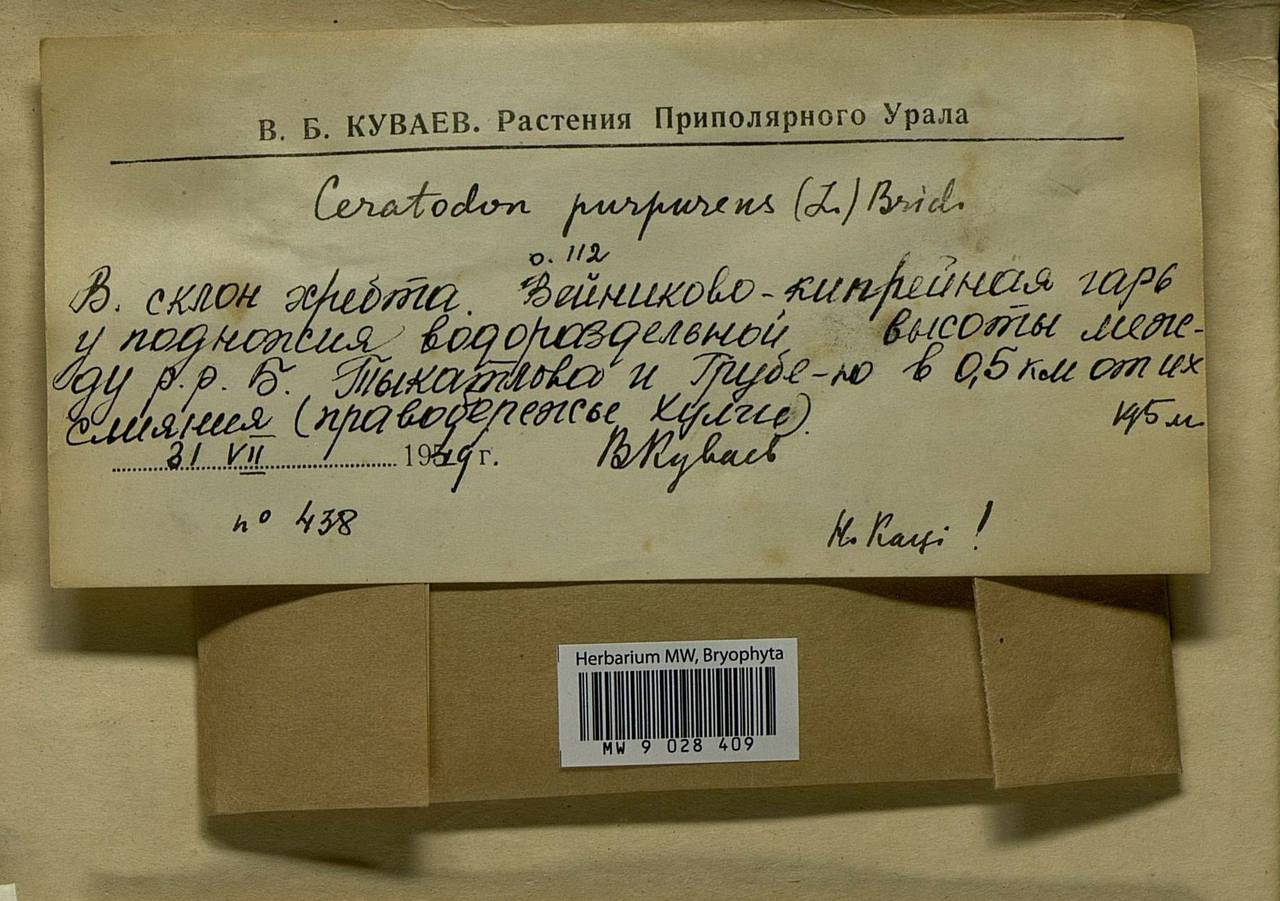 В. Б. КУВАЕВ. Растения Приполярного Урала
Ceratodon purpureus (L.) Brid.
о. 112
В. склон хребта. Вейниково-кипрейная гарь
у подножия водораздельной высоты меж-
ду р.р. Б. Тыкатлова и Грубе-ю в 0,5 км от их
слияния (правобережье Хулги).
195 м.
31 VII 1949 г. ВКуваев
n° 438
Н. Кац !
Herbarium MW, Bryophyta
MW 9 028 409